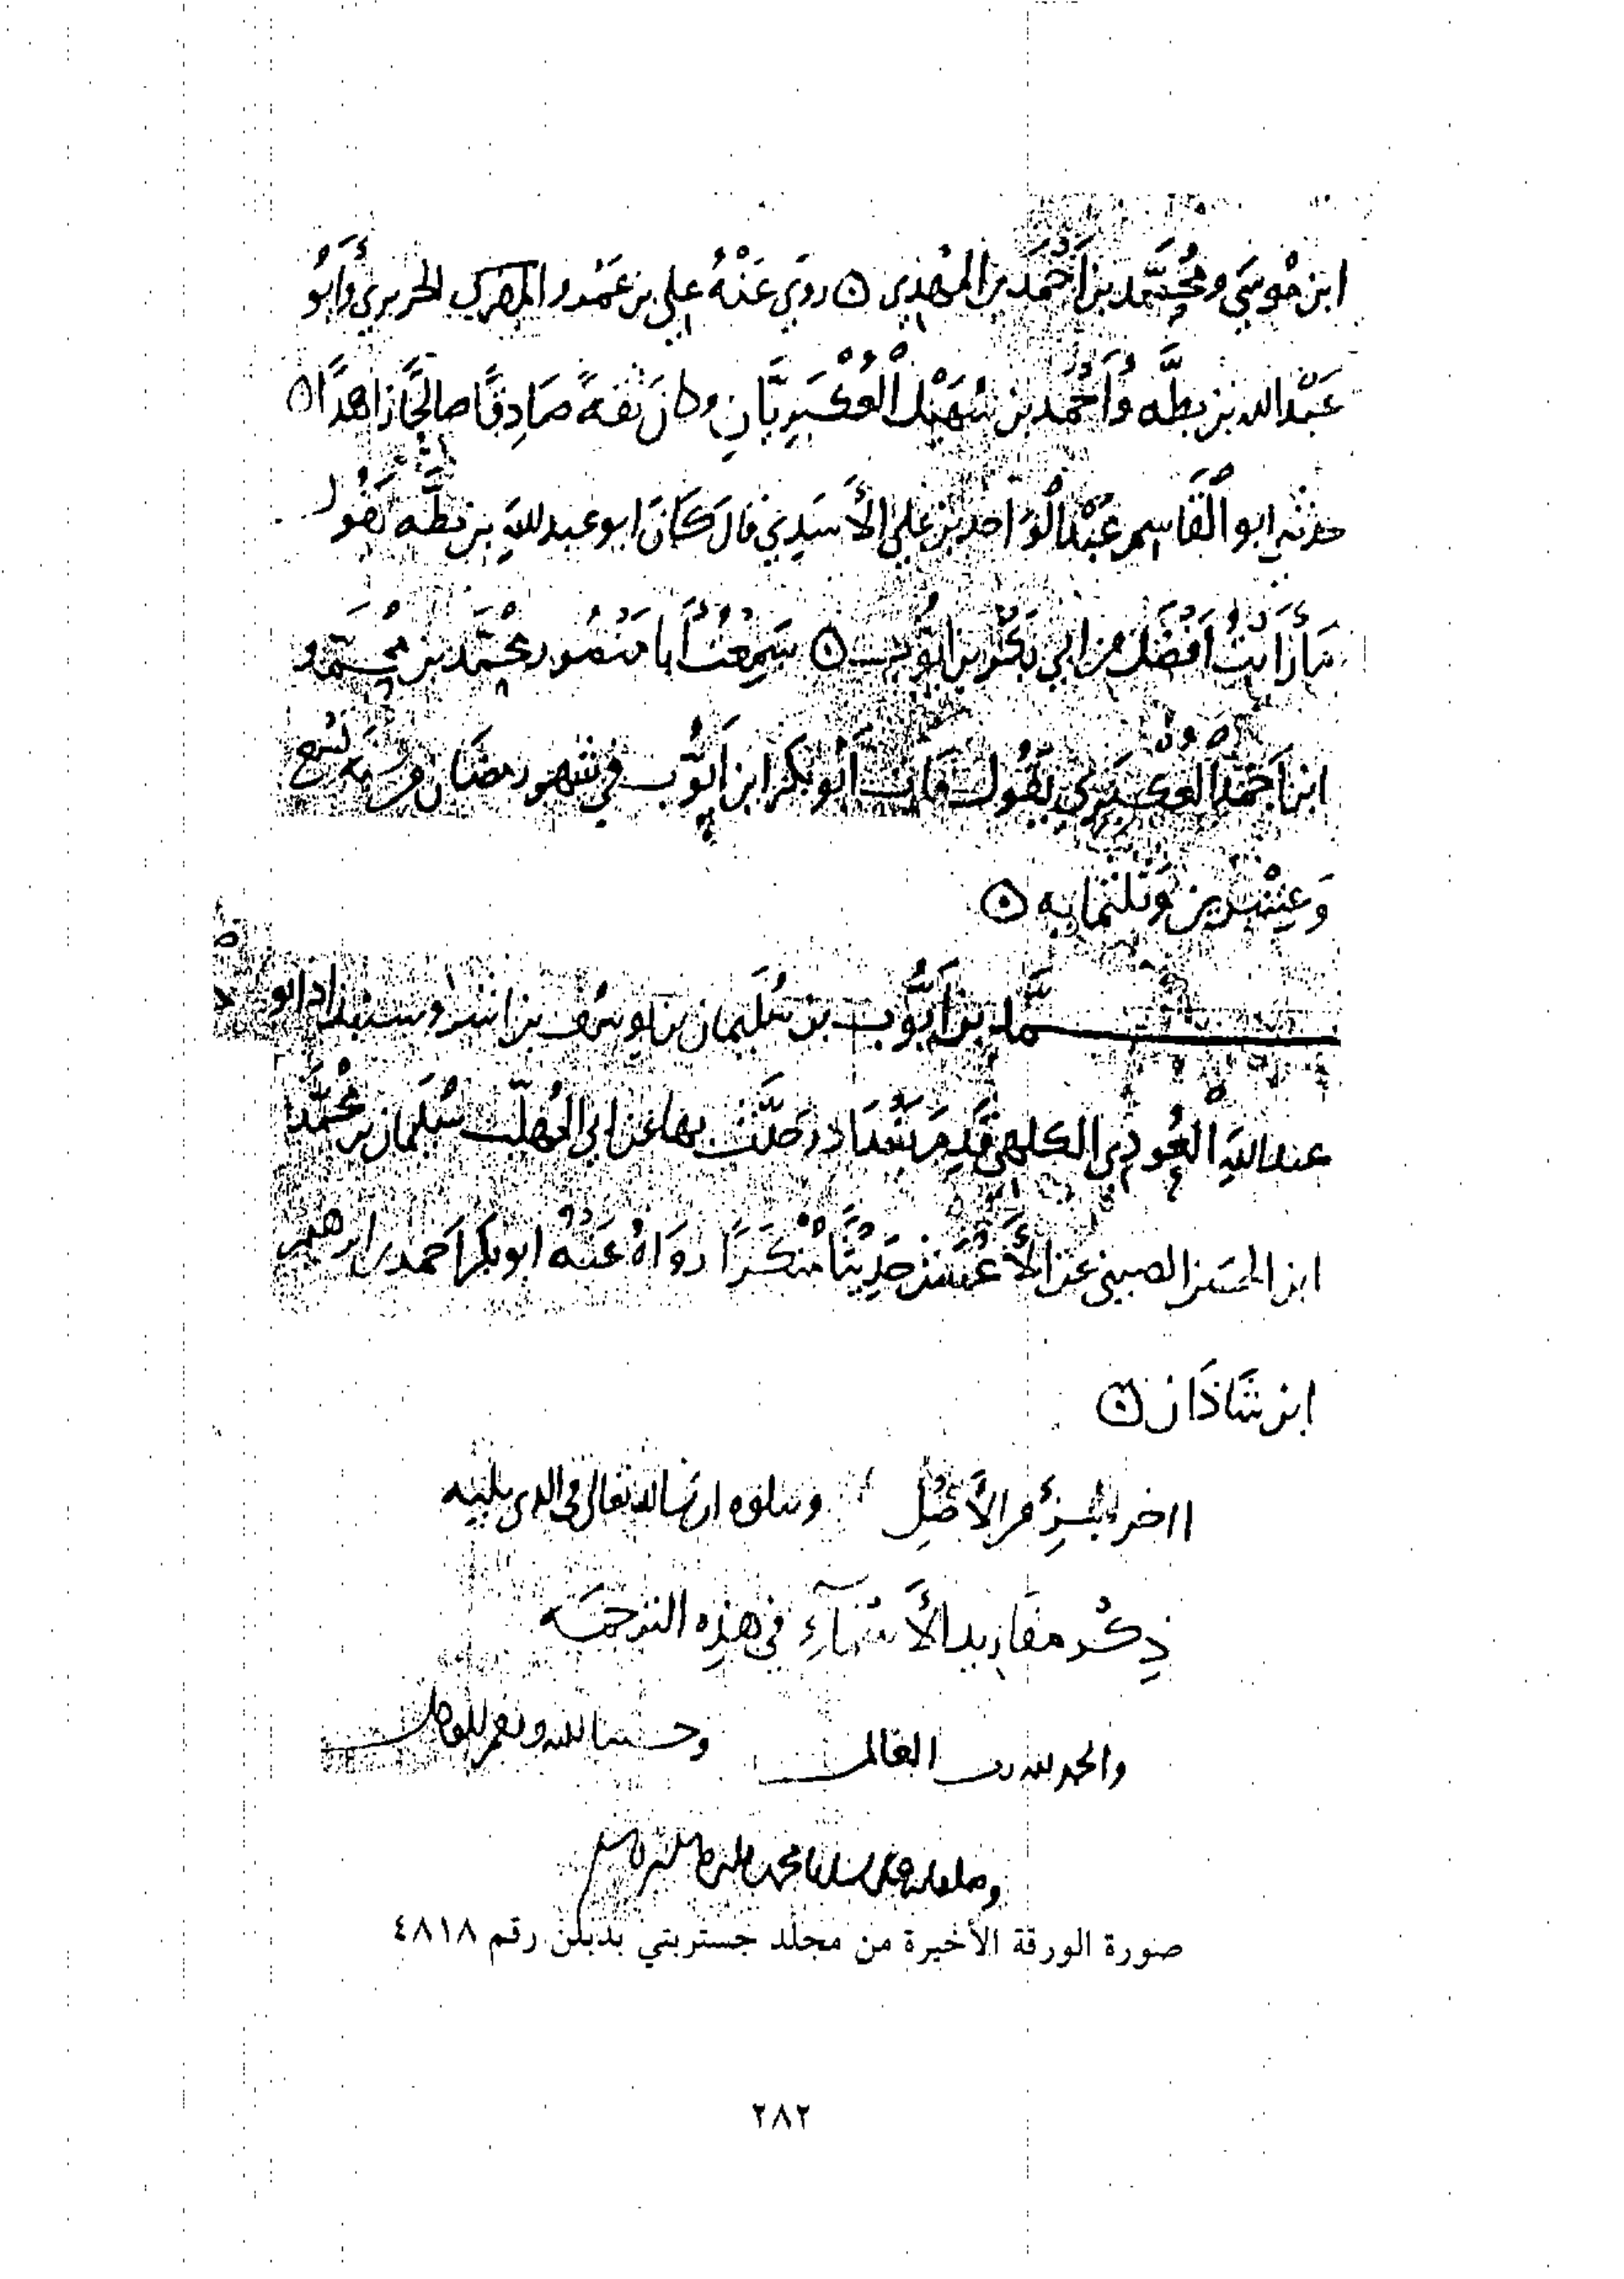 ابن موسى ومحمد بن أحمد بن المهدي ۞ روى عنه علي بن عمرو الحريري وأبو
عبد الله بن بطه وأحمد بن سهيل العكبريان وكان ثقة صادقا صالحا زاهدا ۞
حدثني ابو القاسم عبد الواحد بن علي الأسدي قال كان ابو عبد الله بن بطه يقول
ما رأيت أفضل من ابي بكر بن ايوب ۞ سمعت أبا منصور محمد بن محمد
ابن احمد العكبري يقول مات أبو بكر ابن أيوب في شهر رمضان من سنه تسع
وعشرين وثلثمايه ۞
محمد بن أيوب بن سليمان بن يوسف بن ابو
عبد الله العودي الكلهي قدم بغداد وحدث بها عن ابي المهلب سليمان بن محمد
ابن الحسن الصيني عن الأعمش حديثا منكرا رواه عنه ابو بكر احمد بن ابرهيم
ابن شاذان ۞
اخر الجزء من الأصل وىتلوه ان شا الله تعالى في الدى يليه
ذكر مفاريد الأسماء في هذه الترجمه
والحمد لله رب العالمين وحسبنا الله ونعم الوكيل
وصلواته على سيدنا محمد
صورة الورقة الأخيرة من مجلد جستربتي بدبلن رقم ٤٨١٨
٢٨٢